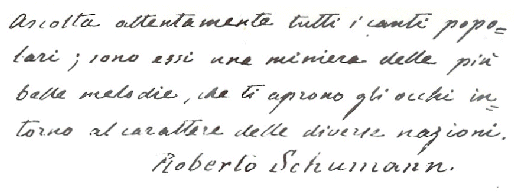 Ascolta attentamente tutti i canti popo=
lari; sono essi una miniera delle più
belle melodie, che ti aprono gli occhi in=
torno al carattere delle diverse nazioni.
Roberto Schumann.